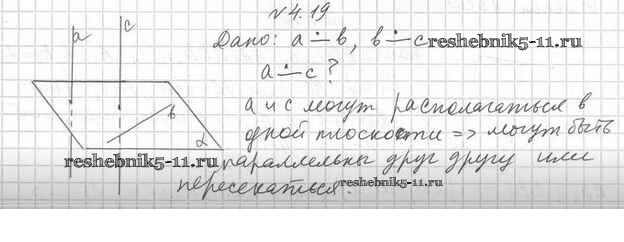 √4.19
a c
Дано: a ∸ в, в ∸ c reshebnik5-11.ru
a ∸ c ?
a и c могут располагаться в
в
одной плоскости => могут быть
α
reshebnik5-11.ru параллельны друг другу или
пересекаться. reshebnik5-11.ru